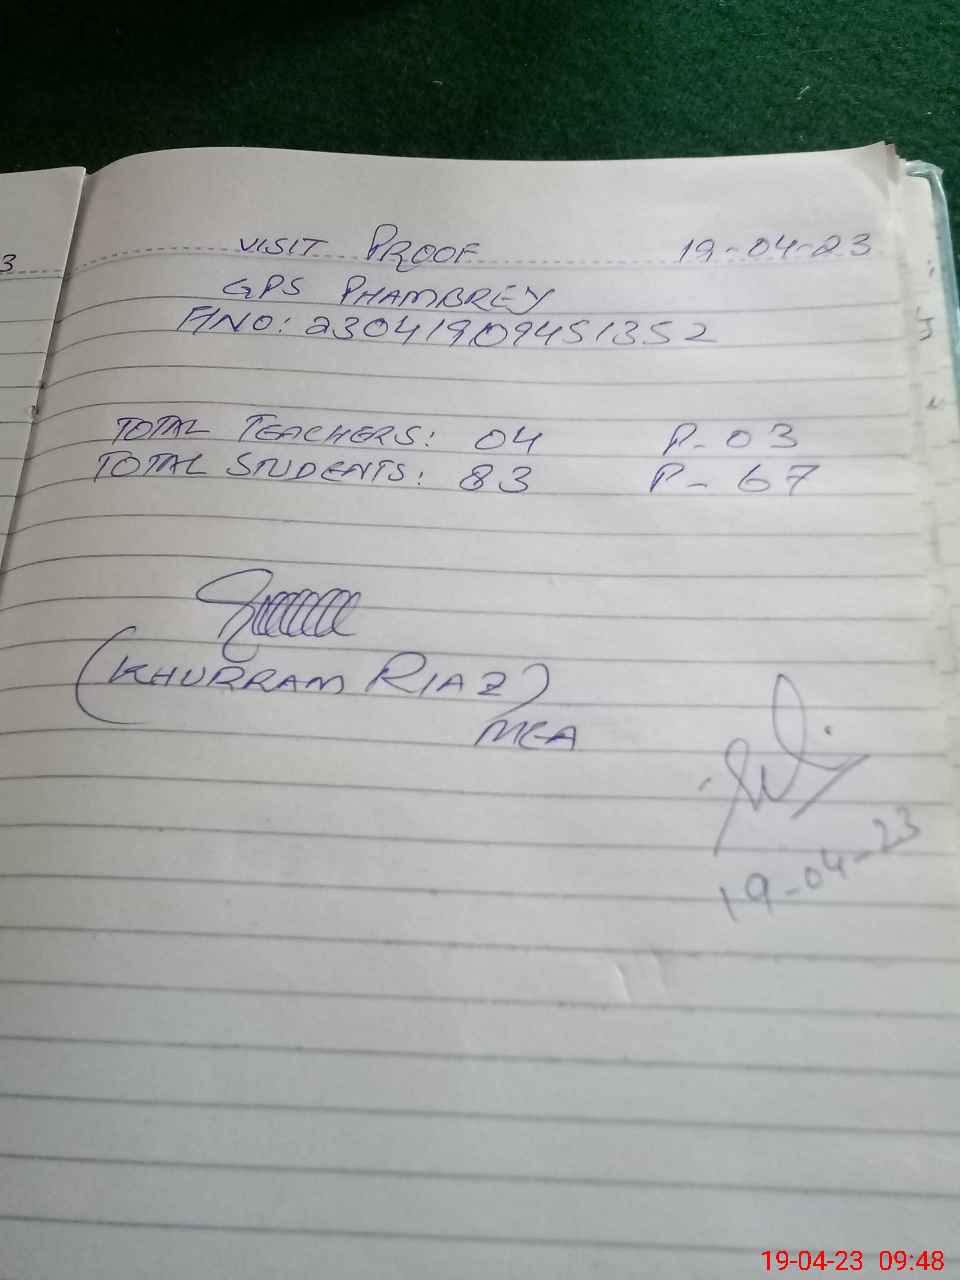 3
VISIT PROOF 19-04-23
GPS PHAMBREY
F/NO: 23041909451352
TOTAL TEACHERS: 04 P-03
TOTAL STUDENTS: 83 P-67
(KHURRAM RIAZ)
MEA
19-04-23
19-04-23 09:48